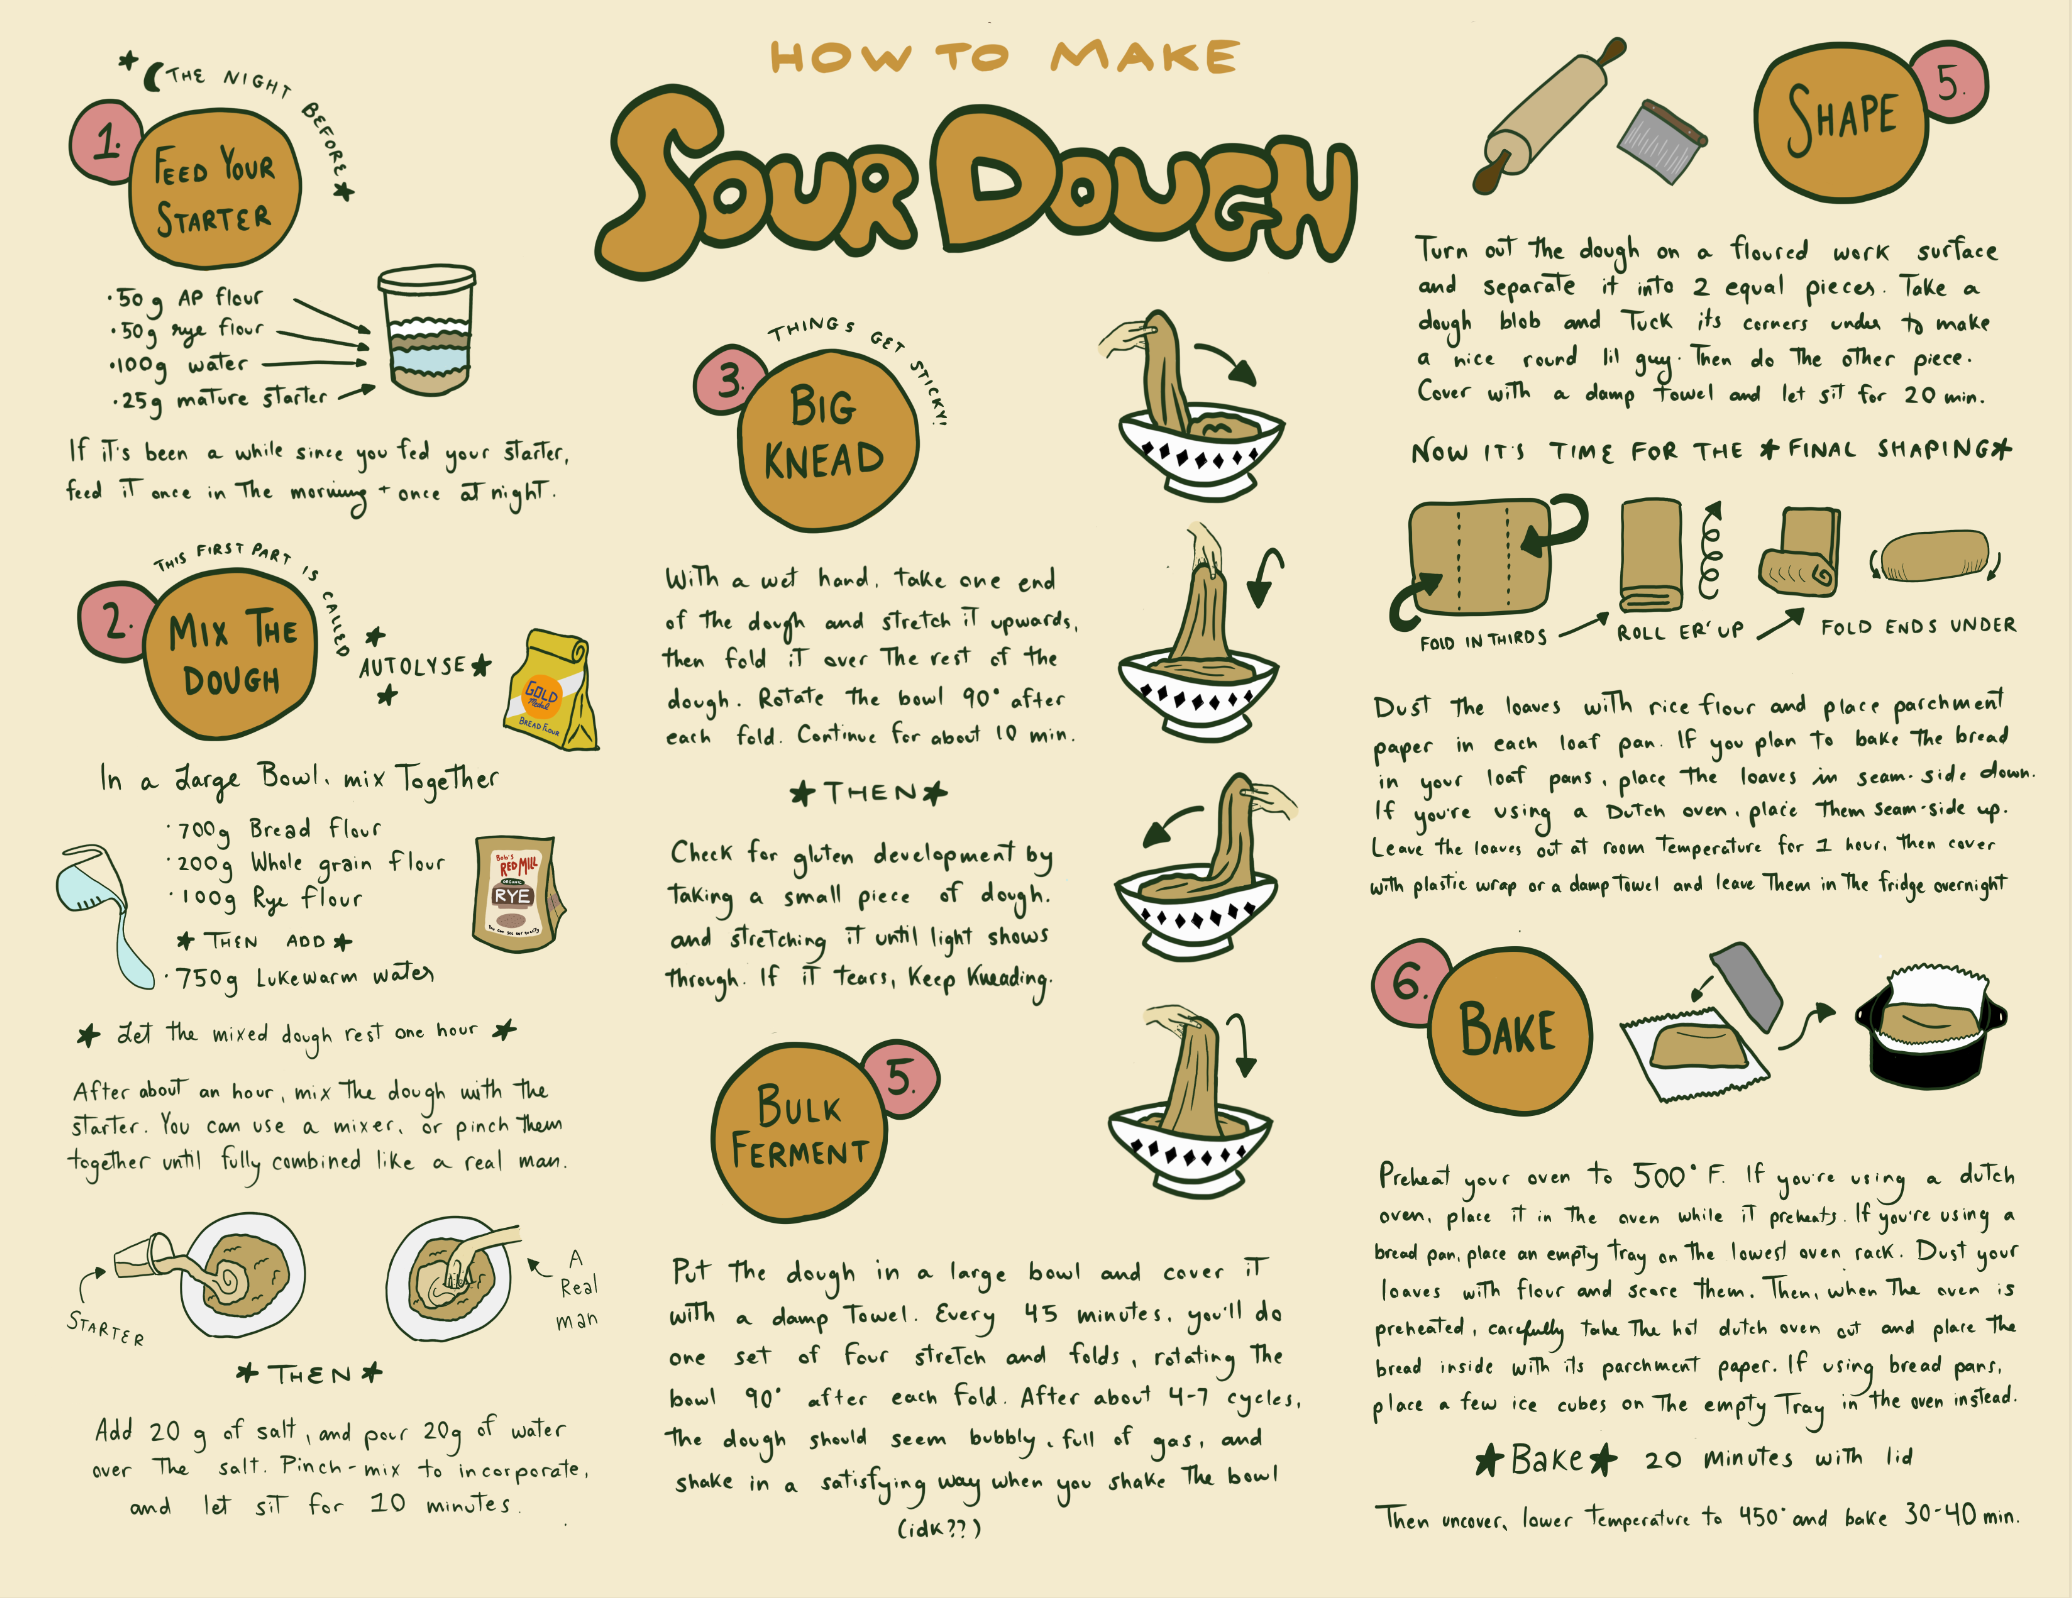 HOW TO MAKE
SOUR DOUGH
THE NIGHT BEFORE
1.
FEED YOUR
STARTER
· 50 g AP flour
· 50g rye flour
· 100g water
· 25g mature starter
If it's been a while since you fed your starter,
feed it once in the morning + once at night.
THIS FIRST PART IS CALLED
2.
MIX THE
DOUGH
AUTOLYSE
GOLD
Medal
BREAD FLOUR
In a Large Bowl, mix Together
· 700g Bread flour
· 200g Whole grain flour
· 100g Rye flour
THEN ADD
· 750g Lukewarm water
Bob's
RED MILL
ORGANIC
RYE
Let the mixed dough rest one hour
After about an hour, mix the dough with the
starter. You can use a mixer, or pinch them
together until fully combined like a real man.
STARTER
A
Real
man
THEN
Add 20 g of salt, and pour 20g of water
over the salt. Pinch-mix to incorporate,
and let sit for 10 minutes.
THINGS GET STICKY!
3.
BIG
KNEAD
With a wet hand, take one end
of the dough and stretch it upwards,
then fold it over the rest of the
dough. Rotate the bowl 90° after
each fold. Continue for about 10 min.
THEN
Check for gluten development by
taking a small piece of dough.
and stretching it until light shows
through. If it tears, keep kneading.
5.
BULK
FERMENT
Put the dough in a large bowl and cover it
with a damp towel. Every 45 minutes, you'll do
one set of four stretch and folds, rotating the
bowl 90° after each fold. After about 4-7 cycles,
the dough should seem bubbly, full of gas, and
shake in a satisfying way when you shake the bowl
(idk??)
SHAPE
5.
Turn out the dough on a floured work surface
and separate it into 2 equal pieces. Take a
dough blob and tuck its corners under to make
a nice round lil guy. Then do the other piece.
Cover with a damp towel and let sit for 20 min.
NOW IT'S TIME FOR THE FINAL SHAPING
FOLD IN THIRDS
ROLL ER' UP
FOLD ENDS UNDER
Dust the loaves with rice flour and place parchment
paper in each loaf pan. If you plan to bake the bread
in your loaf pans, place the loaves in seam-side down.
If you're using a Dutch oven, place them seam-side up.
Leave the loaves out at room temperature for 1 hour, then cover
with plastic wrap or a damp towel and leave them in the fridge overnight
6.
BAKE
Preheat your oven to 500° F. If you're using a dutch
oven, place it in the oven while it preheats. If you're using a
bread pan, place an empty tray on the lowest oven rack. Dust your
loaves with flour and score them. Then, when the oven is
preheated, carefully take the hot dutch oven out and place the
bread inside with its parchment paper. If using bread pans,
place a few ice cubes on the empty tray in the oven instead.
Bake 20 minutes with lid
Then uncover, lower temperature to 450° and bake 30-40 min.